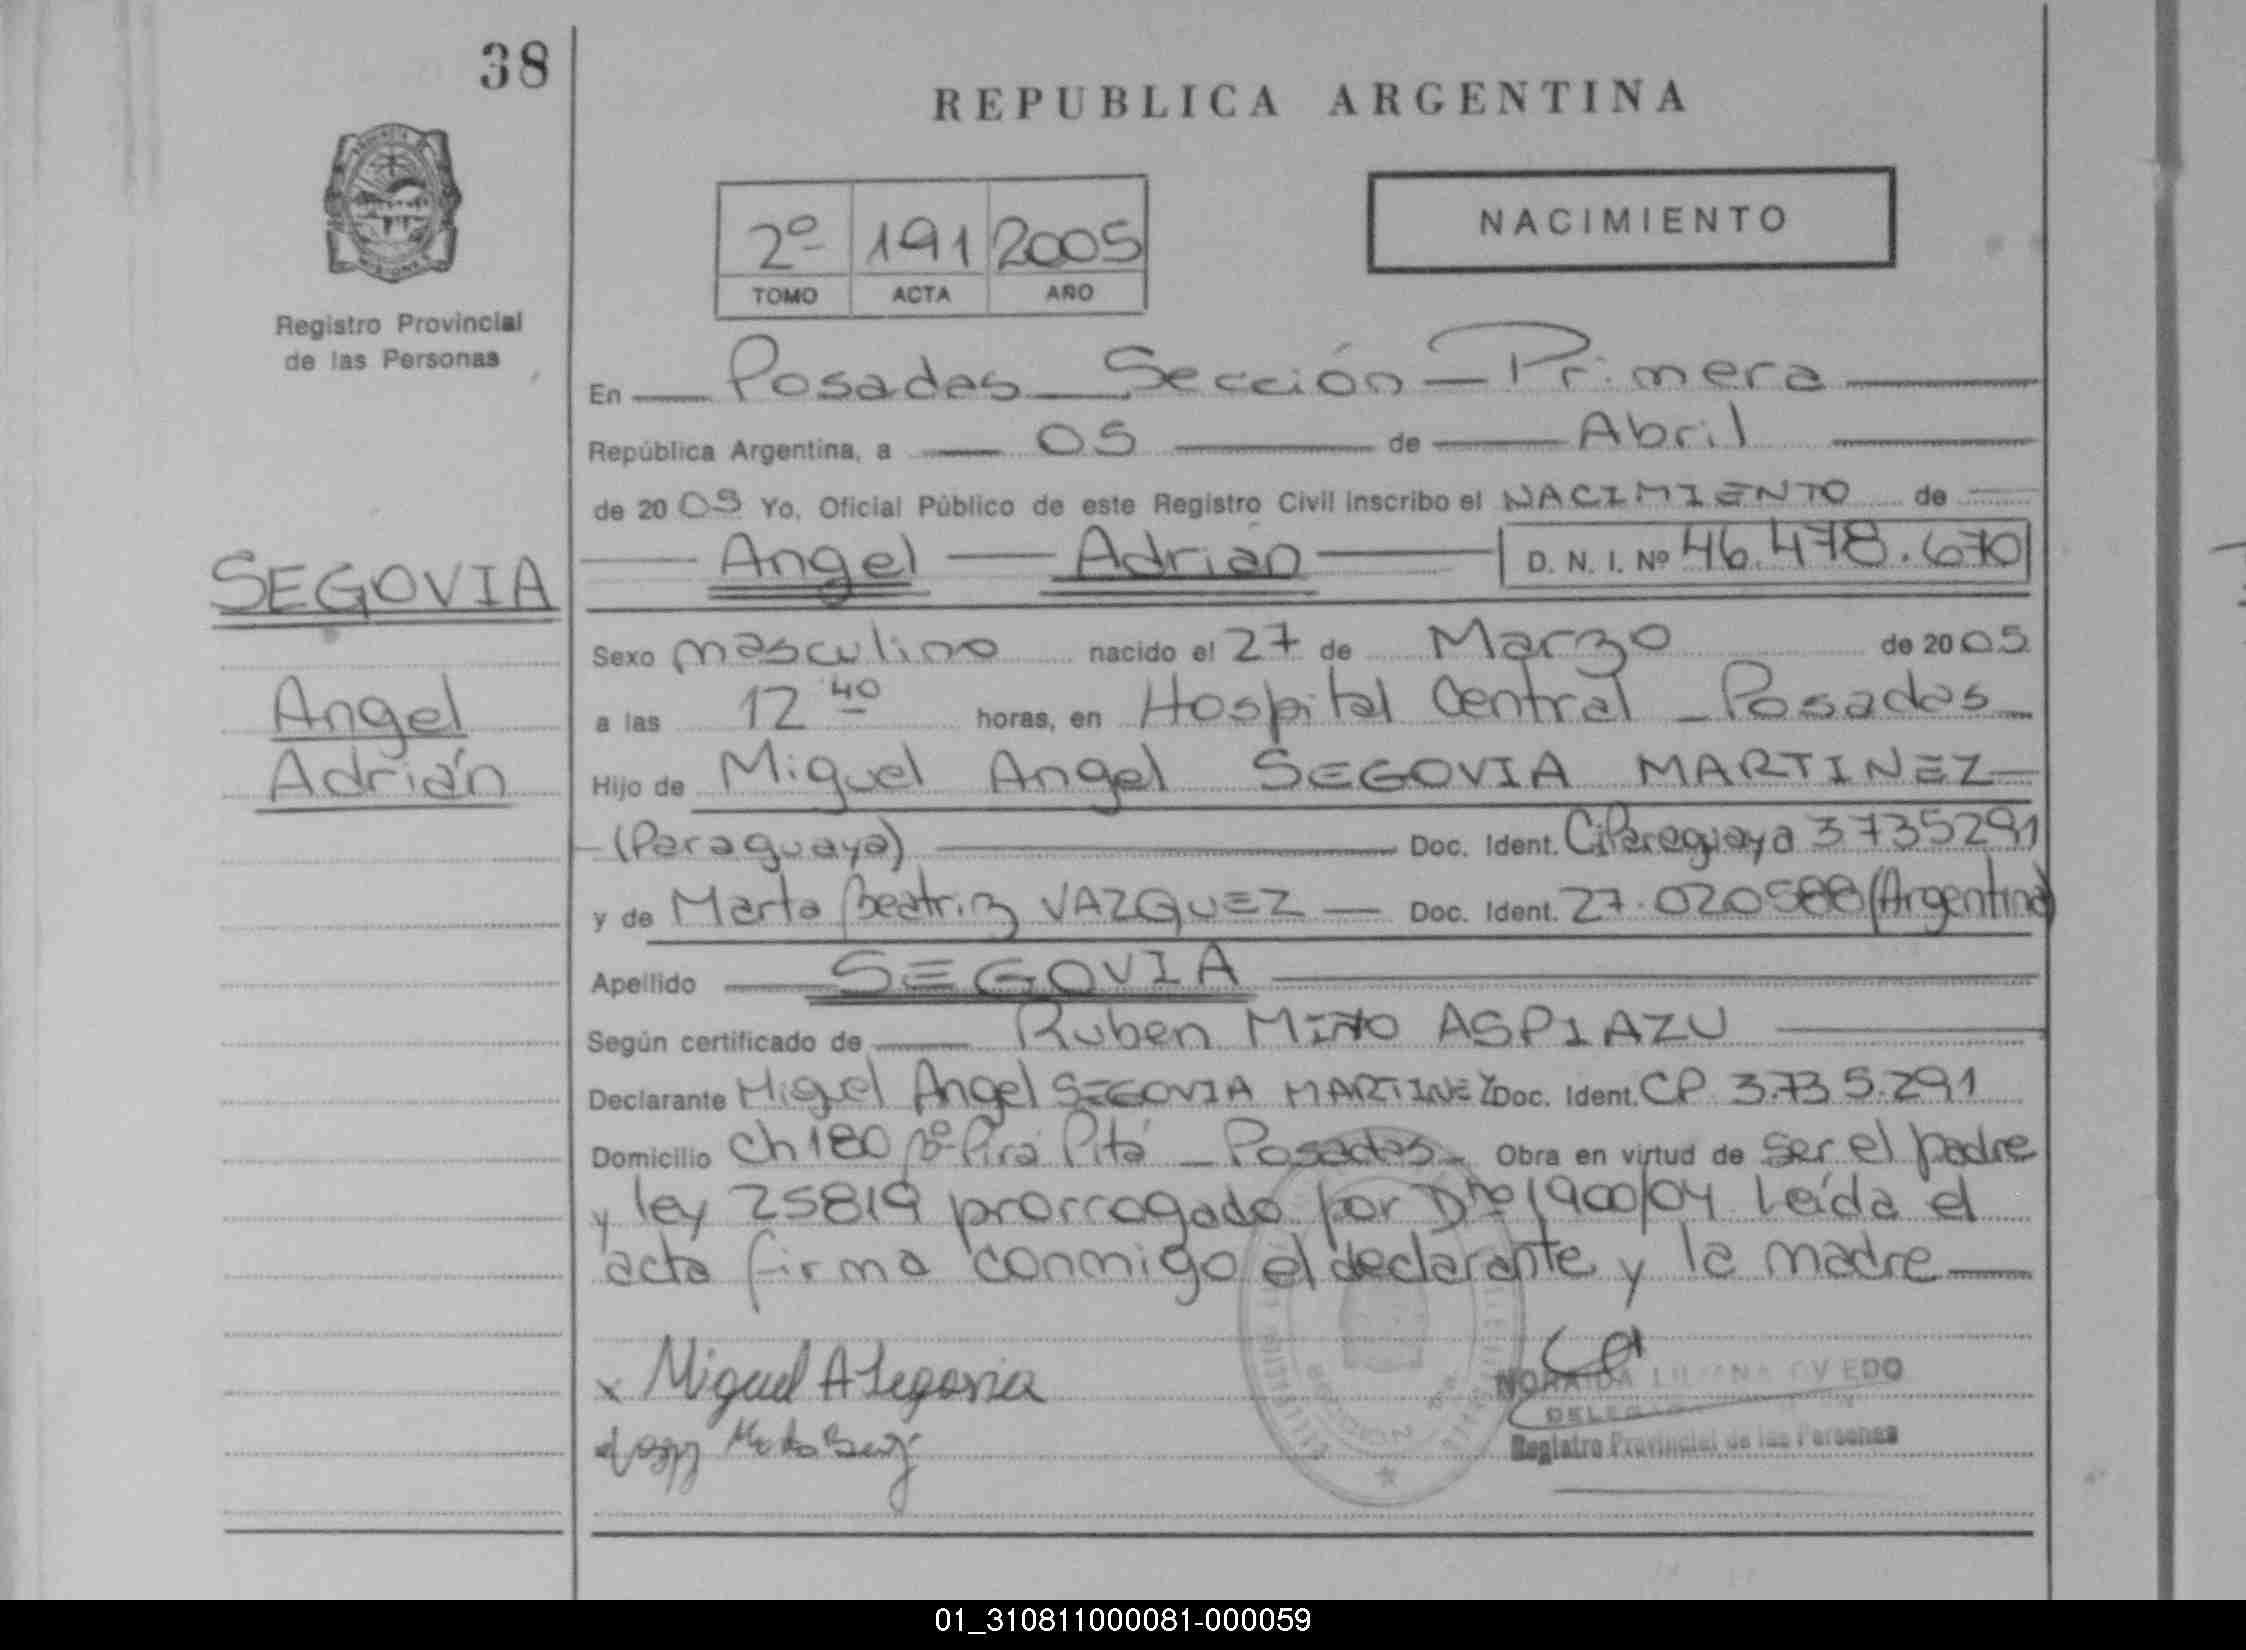 38
REPUBLICA ARGENTINA
NACIMIENTO
2º 191 2005
TOMO ACTA AÑO
Registro Provincial
de las Personas
En Posadas Sección Primera
República Argentina, a 05 de Abril
de 2005 Yo, Oficial Público de este Registro Civil inscribo el NACIMIENTO de
SEGOVIA
Angel Adrián D. N. I. Nº 46.478.670
Sexo masculino nacido el 27 de Marzo de 2005
Angel
a las 12 40 horas, en Hospital Central - Posadas
Adrián
Hijo de Miguel Angel SEGOVIA MARTINEZ
(Paraguaya) Doc. Ident. CiParaguaya 3735291
y de Marta Beatriz VAZQUEZ Doc. Ident. 27.020588 (Argentina)
Apellido SEGOVIA
Según certificado de Ruben MIÑO ASPIAZU
Declarante Miguel Angel SEGOVIA MARTINEZ Doc. Ident. CP. 3.735.291
Domicilio Ch 180 Bº Pirá Pitá - Posadas - Obra en virtud de ser el padre
y ley 25819 prorrogado por Dto 1900/04 Leída el
acta firma conmigo el declarante y la madre
x Miguel A Segovia
OVIEDO
Registro Provincial de las Personas
01_310811000081-000059